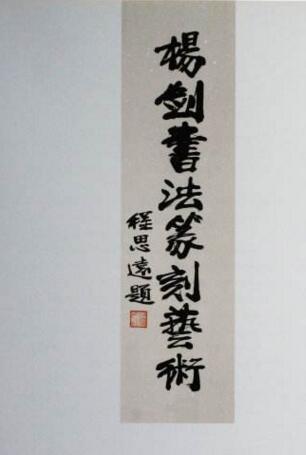 楊劍書法篆刻藝術
程思遠題